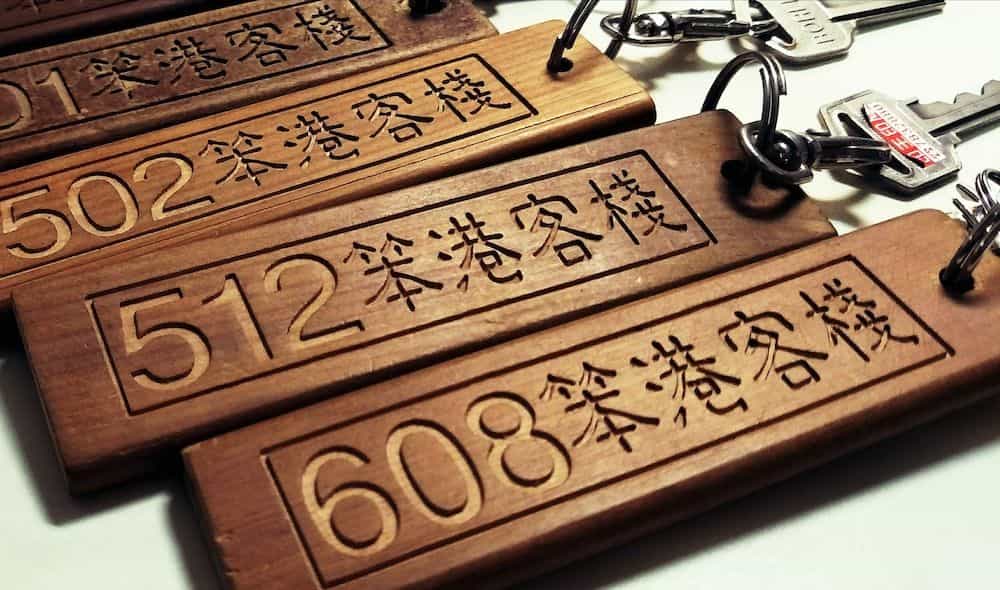 01笨港客棧
502笨港客棧
512笨港客棧
608笨港客棧